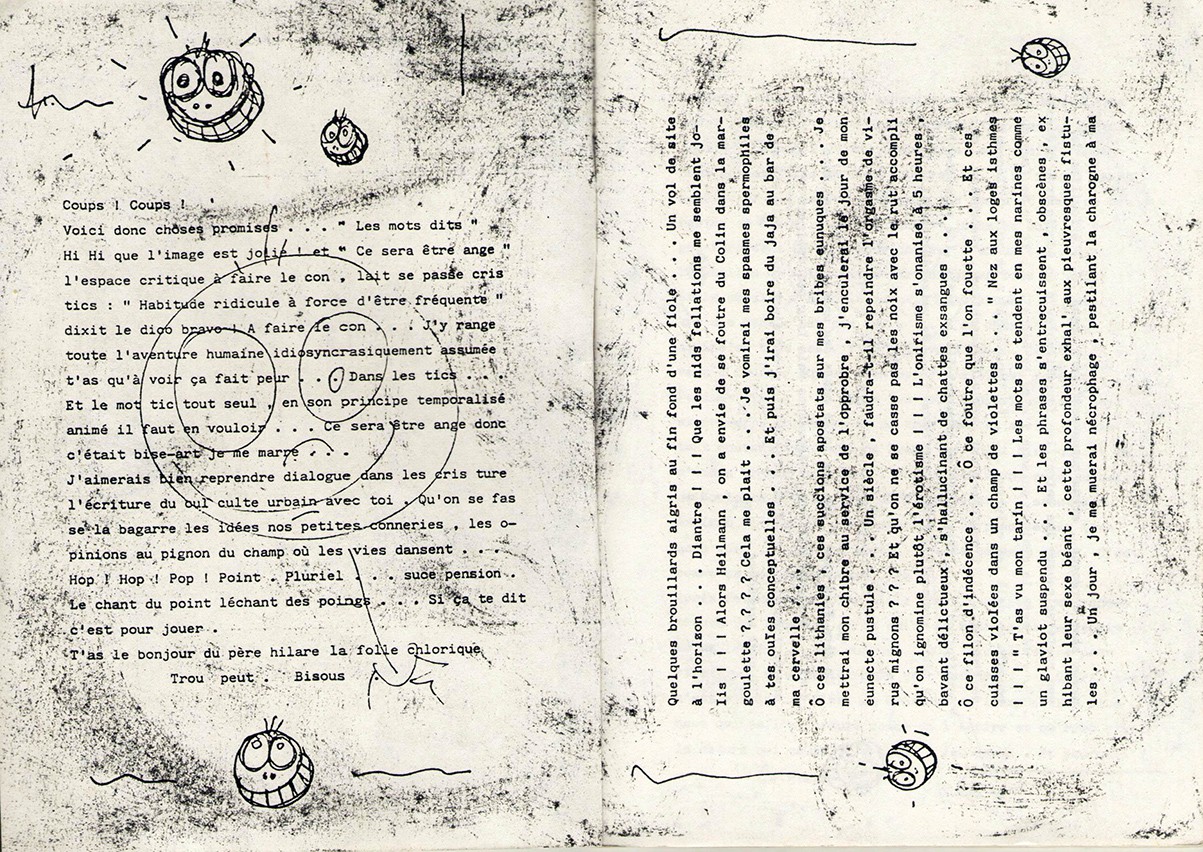 Coups ! Coups !
Voici donc choses promises . . . " Les mots dits "
Hi Hi que l'image est jolie ! et " Ce sera être ange "
l'espace critique à faire le con , lait se passe cris
tics : " Habitude ridicule à force d'être fréquente "
dixit le dico bravo ! A faire le con . . . J'y range
toute l'aventure humaine idiosyncrasiquement assumée
t'as qu'à voir ça fait peur . . . Dans les tics . . .
Et le mot tic tout seul , en son principe temporalisé
animé il faut en vouloir . . . Ce sera être ange donc
c'était bise-art je me marre . . .
J'aimerais bien reprendre dialogue dans les cris ture
l'écriture du cul culte urbain avec toi . Qu'on se fas
se la bagarre les idées nos petites conneries , les o-
pinions au pignon du champ où les vies dansent . . .
Hop ! Hop ! Pop ! Point . Pluriel . . . suce pension .
Le chant du point léchant des poings . . . Si ça te dit
c'est pour jouer .
T'as le bonjour du père hilare la folle chlorique
Trou peut . Bisous
Quelques brouillards aigris au fin fond d'une fiole . . . Un vol de site
à l'horizon . . . Diantre ! ! ! Que les nids fellations me semblent jo-
lis ! ! ! Alors Heilmann , on a envie de se foutre du Colin dans la mar-
goulette ? ? ? ? Cela me plait . . . Je vomirai mes spasmes spermophiles
à tes ouïes conceptuelles . . . Et puis j'irai boire du jaja au bar de
ma cervelle . . .
Ô ces lithanies , ces succions apostats sur mes bribes eunuques . . . Je
mettrai mon chibre au service de l'opprobre , j'enculerai le jour de mon
eunecte pustule . . . Un siècle , faudra-t-il repeindre l'orgasme de vi-
rus mignons ? ? ? Et qu'on ne se casse pas les noix avec le rut accompli
qu'on ignomine plutôt l'érotisme ! ! ! L'onirisme s'onanise à 5 heures ,
bavant délictueux , s'hallucinant de chattes exsangues . . .
Ô ce filon d'indécence . . . Ô ce foutre que l'on fouette . . . Et ces
cuisses violées dans un champ de violettes . . . " Nez aux loges isthmes
! ! " T'as vu mon tarin ! ! ! Les mots se tendent en mes narines comme
un glaviot suspendu . . . Et les phrases s'entrecuissent , obscènes , ex
hibant leur sexe béant , cette profondeur exhal' aux pieuvresques fistu-
les . . . Un jour , je me muerai nécrophage , pestilant la charogne à ma